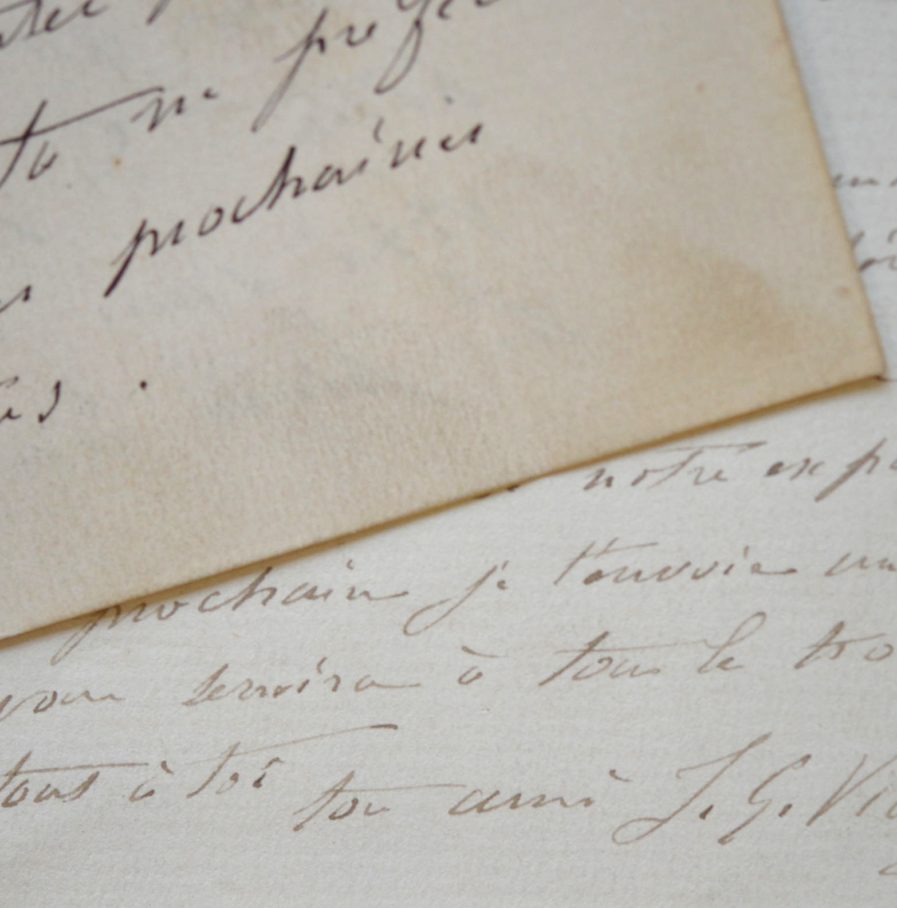 tu ne préfè
prochaines
notre expo
prochain je t'envoie un
vous servira à tous le tro
tout à toi
ton ami J. G. Vi